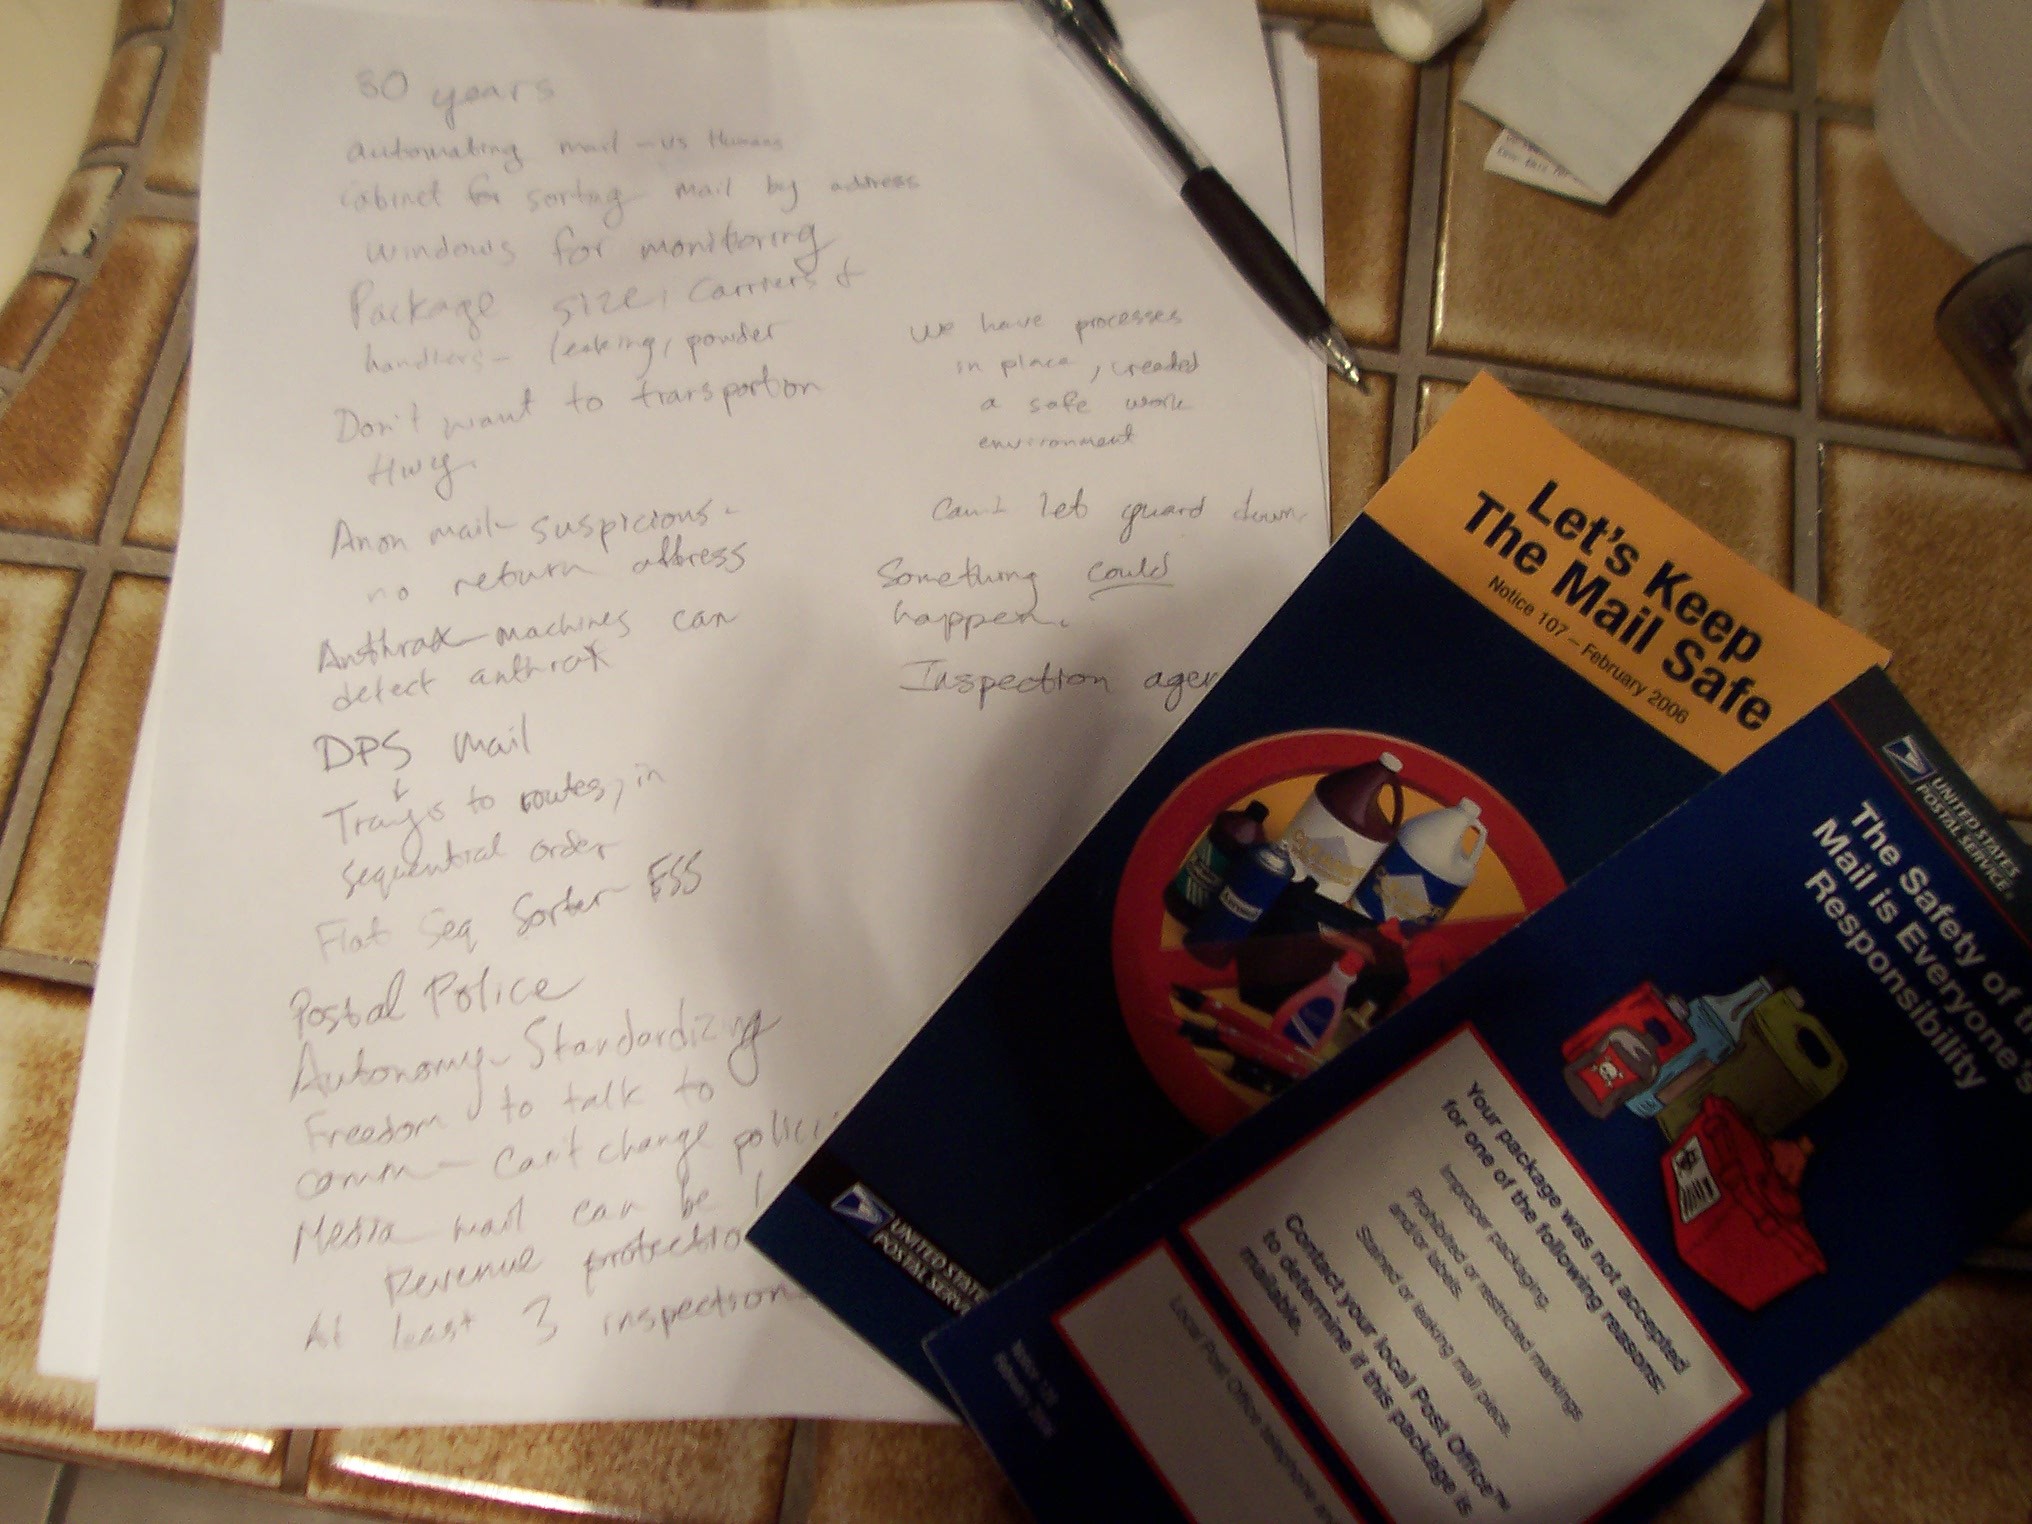 30 years
automating mail - us Humans
cabinet for sorting mail by address
windows for monitoring
Package size, carriers &
handlers - leaking, powder
Don't want to transportion
Hwy.
Anon mail - suspicious -
no return address
Anthrax - machines can
detect anthrax
DPS Mail
Trays to routes, in
sequential order
Flat Seq Sorter FSS
Postal Police
Autonomy - Standardizing
Freedom to talk to
comm - Can't change polici
Media mail can be
Revenue protectio
At least 3 inspection
We have processes
in place, creaded
a safe work
environment
Can't let guard down.
Something could
happen.
Inspection agen
Let's Keep
The Mail Safe
Notice 107 – February 2006
UNITED STATE
POSTAL SERV
UNITED STATES
POSTAL SERVICE
The Safety of th
Mail is Everyone's
Responsibility
Your package was not accepted
for one of the following reasons:
Improper packaging.
Prohibited or restricted markings
and/or labels.
Stained or leaking mail piece.
Contact your local Post Office™
to determine if this package is
mailable.
Local Post Office telephone